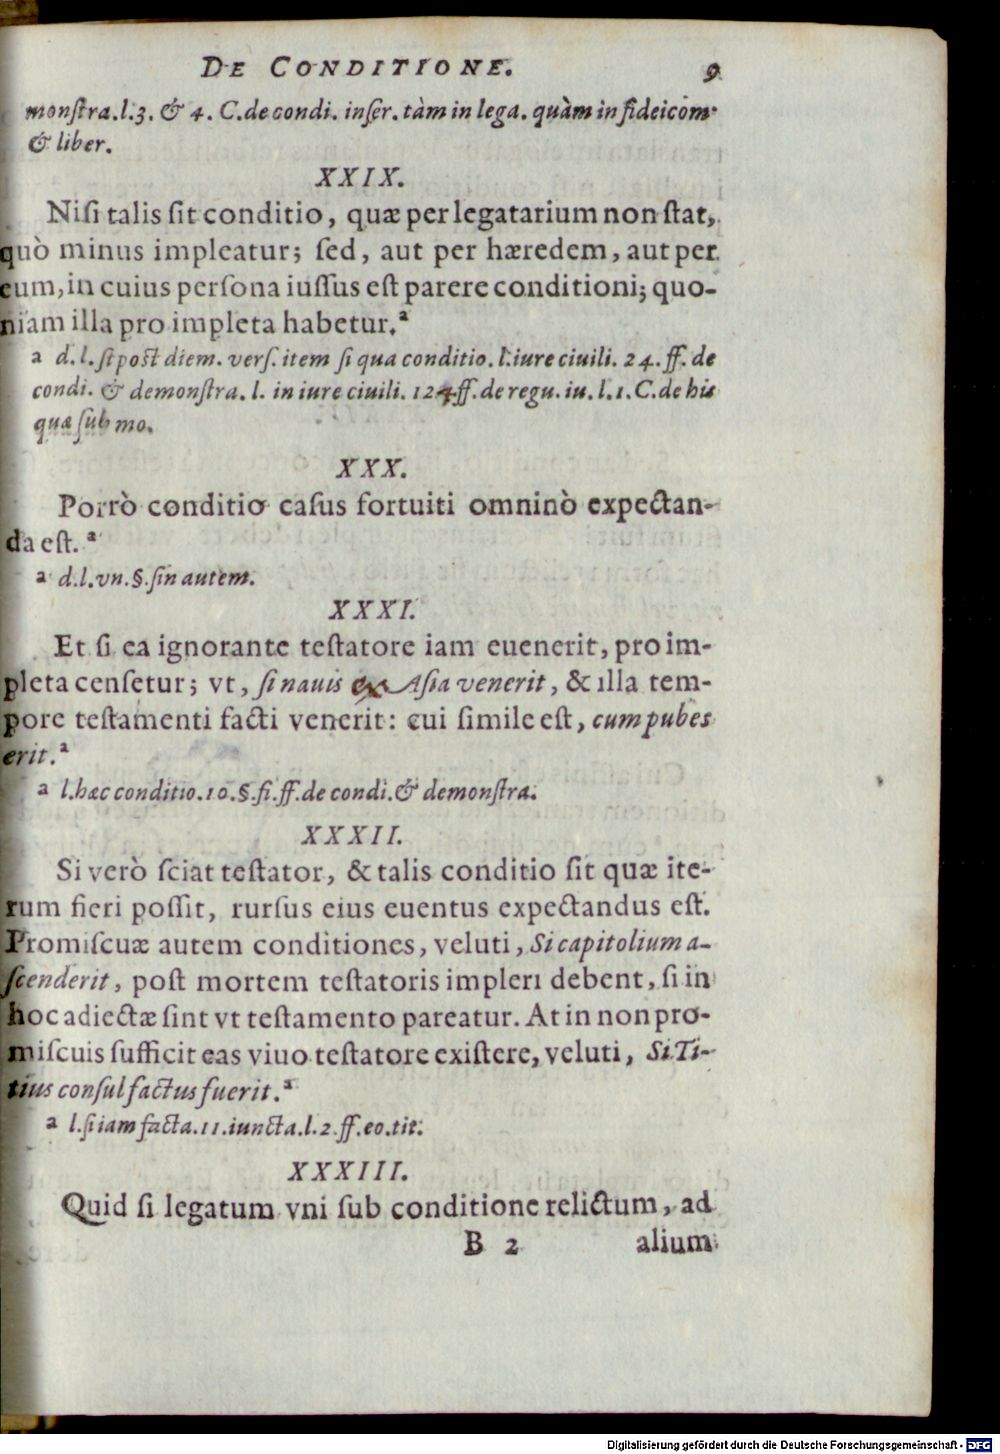 DE CONDITIONE. 9
monſtra.l.3. & 4. C.de condi. inſer. tàm in lega. quàm in fideicom
& liber.
XXIX.
Niſi talis ſit conditio, quæ per legatarium non ſtat,
quò minus impleatur; ſed, aut per hæredem, aut per
eum, in cuius perſona iuſſus eſt parere conditioni; quo-
niam illa pro impleta habetur.ᵃ
a d. l. ſi poſt diem. verſ. item ſi qua conditio. l. iure ciuili. 24. ff. de
condi. & demonſtra. l. in iure ciuili. 124 ff. de regu. iu. l. 1. C. de his
quæ ſub mo.
XXX.
Porrò conditio caſus fortuiti omninò expectan-
da eſt.ᵃ
a d.l.vn.§.ſin autem.
XXXI.
Et ſi ea ignorante teſtatore iam euenerit, pro im-
pleta cenſetur; vt, ſi nauis ex Aſia venerit, & illa tem-
pore teſtamenti facti venerit: cui ſimile eſt, cum pubes
erit.ᵃ
a l.hæc conditio.10.§.ſi.ff.de condi.& demonſtra.
XXXII.
Si verò ſciat teſtator, & talis conditio ſit quæ ite-
rum fieri poſſit, rurſus eius euentus expectandus eſt.
Promiſcuæ autem conditiones, veluti, Si capitolium a-
ſcenderit, poſt mortem teſtatoris impleri debent, ſi in
hoc adiectæ ſint vt teſtamento pareatur. At in non pro-
miſcuis ſufficit eas viuo teſtatore exiſtere, veluti, Si Ti-
tius conſul factus fuerit.ᵃ
a l.ſi iam facta.11.iuncta.l.2.ff.eo.tit.
XXXIII.
Quid ſi legatum vni ſub conditione relictum, ad
B 2 alium
Digitalisierung gefördert durch die Deutsche Forschungsgemeinschaft - DFG